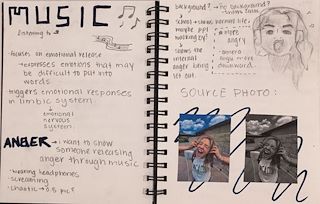 MUSIC
listening to
focuses on emotional release
→ expresses emotions that may
be difficult to put into
words
triggers emotional responses
in limbic system
↓
emotional
nervous
system
ANGER → I want to show
someone releasing
anger through music
• wearing headphones
• screaming
• chaotic → 0.5 pic?
background? → no background?
shows normal life,
maybe ppl
walking by?
shows the
internal
anger being
let out.
more
angry
camera
angle more
downward
SOURCE PHOTO: